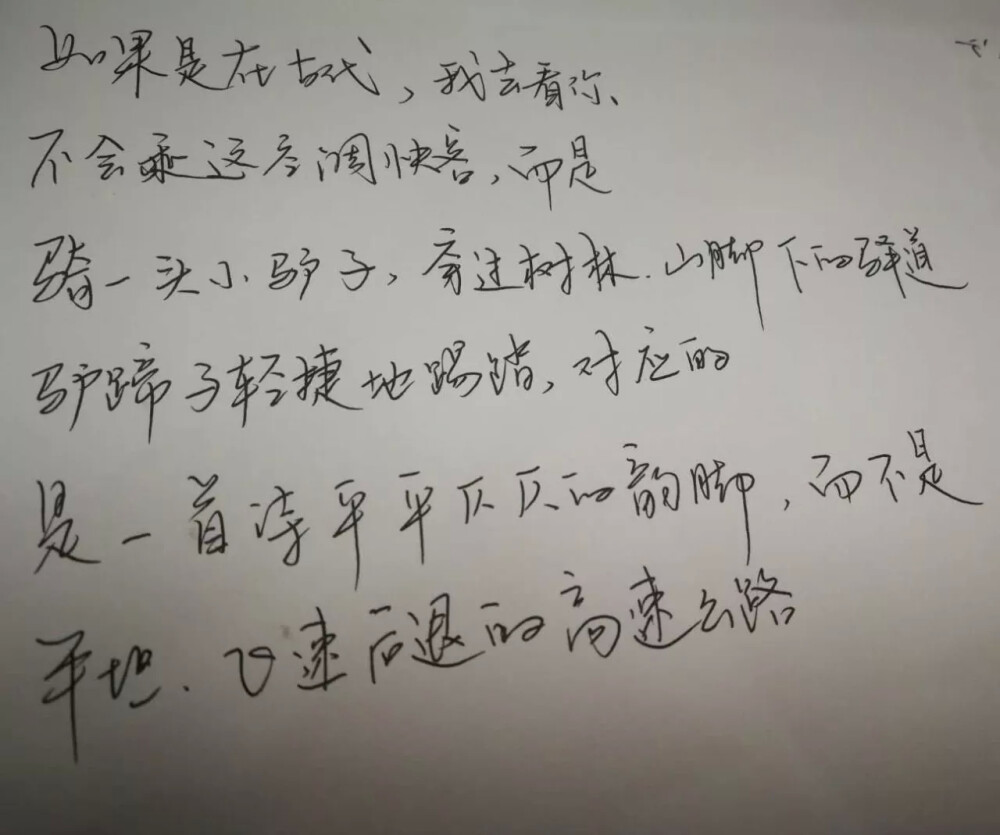 如果是在古代，我去看你、
不会乘这空调快客，而是
骑一头小驴子，穿过树林、山脚下的驿道
驴蹄子轻捷地踢踏，对应的
是一首诗平平仄仄的韵脚，而不是
平坦、飞速后退的高速公路